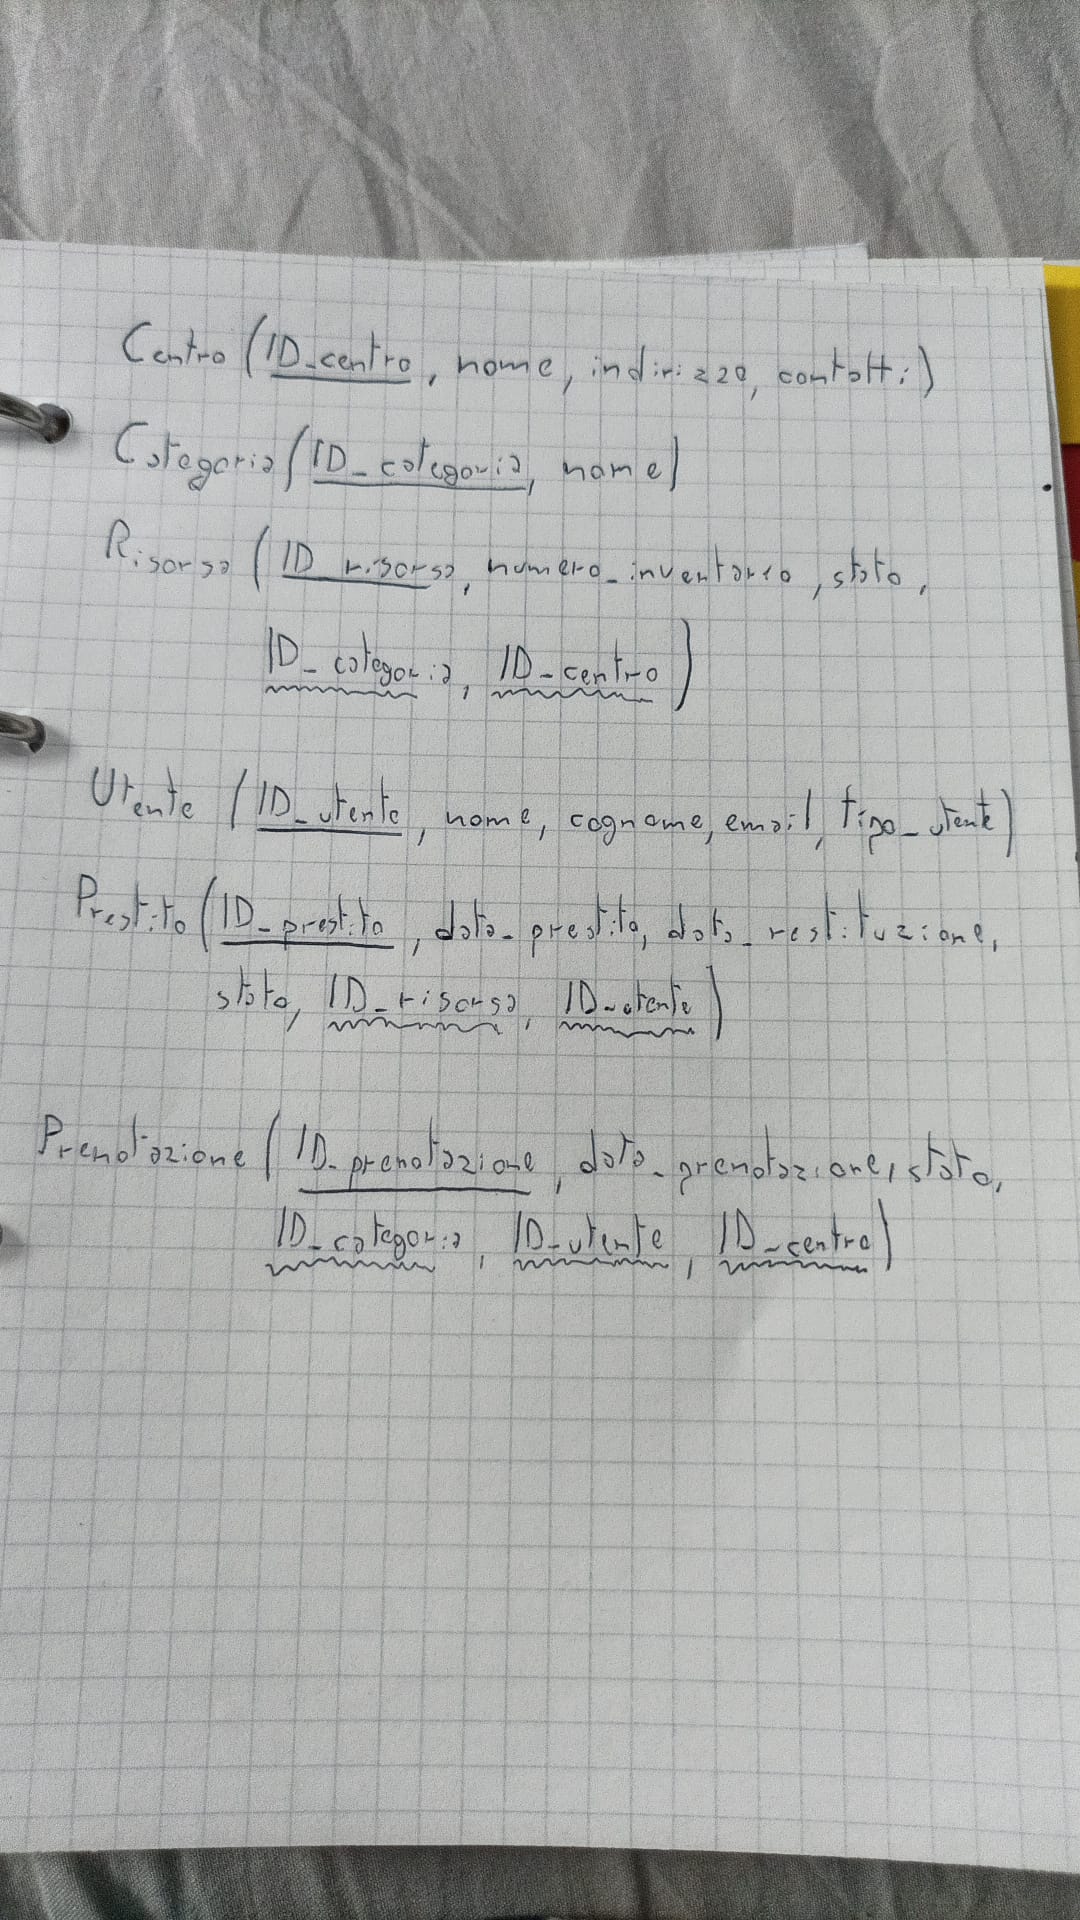 Centro (ID_centro, nome, indirizzo, contatti)
Categoria (ID_categoria, nome)
Risorsa (ID_risorsa, numero_inventario, stato,
ID_categoria, ID_centro)
Utente (ID_utente, nome, cognome, email, tipo_utente)
Prestito (ID_prestito, data_prestito, data_restituzione,
stato, ID_risorsa, ID_utente)
Prenotazione (ID_prenotazione, data_prenotazione, stato,
ID_categoria, ID_utente, ID_centro)